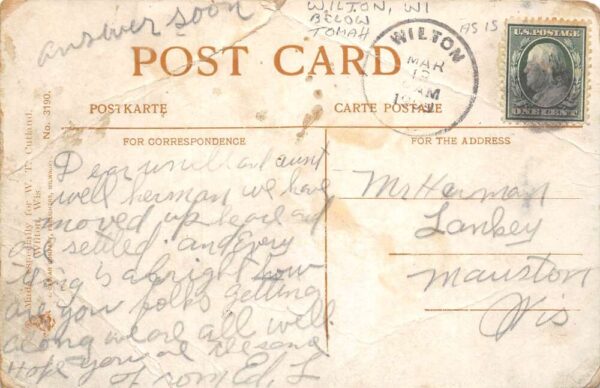 answer soon
WILTON, WI
BELOW
TOMAH
AS IS
WILTON
MAR
12
AM
U.S. POSTAGE
ONE CENT
POST CARD
POSTKARTE
CARTE POSTALE
FOR CORRESPONDENCE
FOR THE ADDRESS
No. 3190.
for W. T.
Wilton, Wis.
Dear and aunt
well herman we have
moved up hear and
are settled. and every
thing is alright how
are you folks getting
along we are all well.
Hope you are the same
from Ed. L
Mr Herman
Lankey
Mauston
Wis